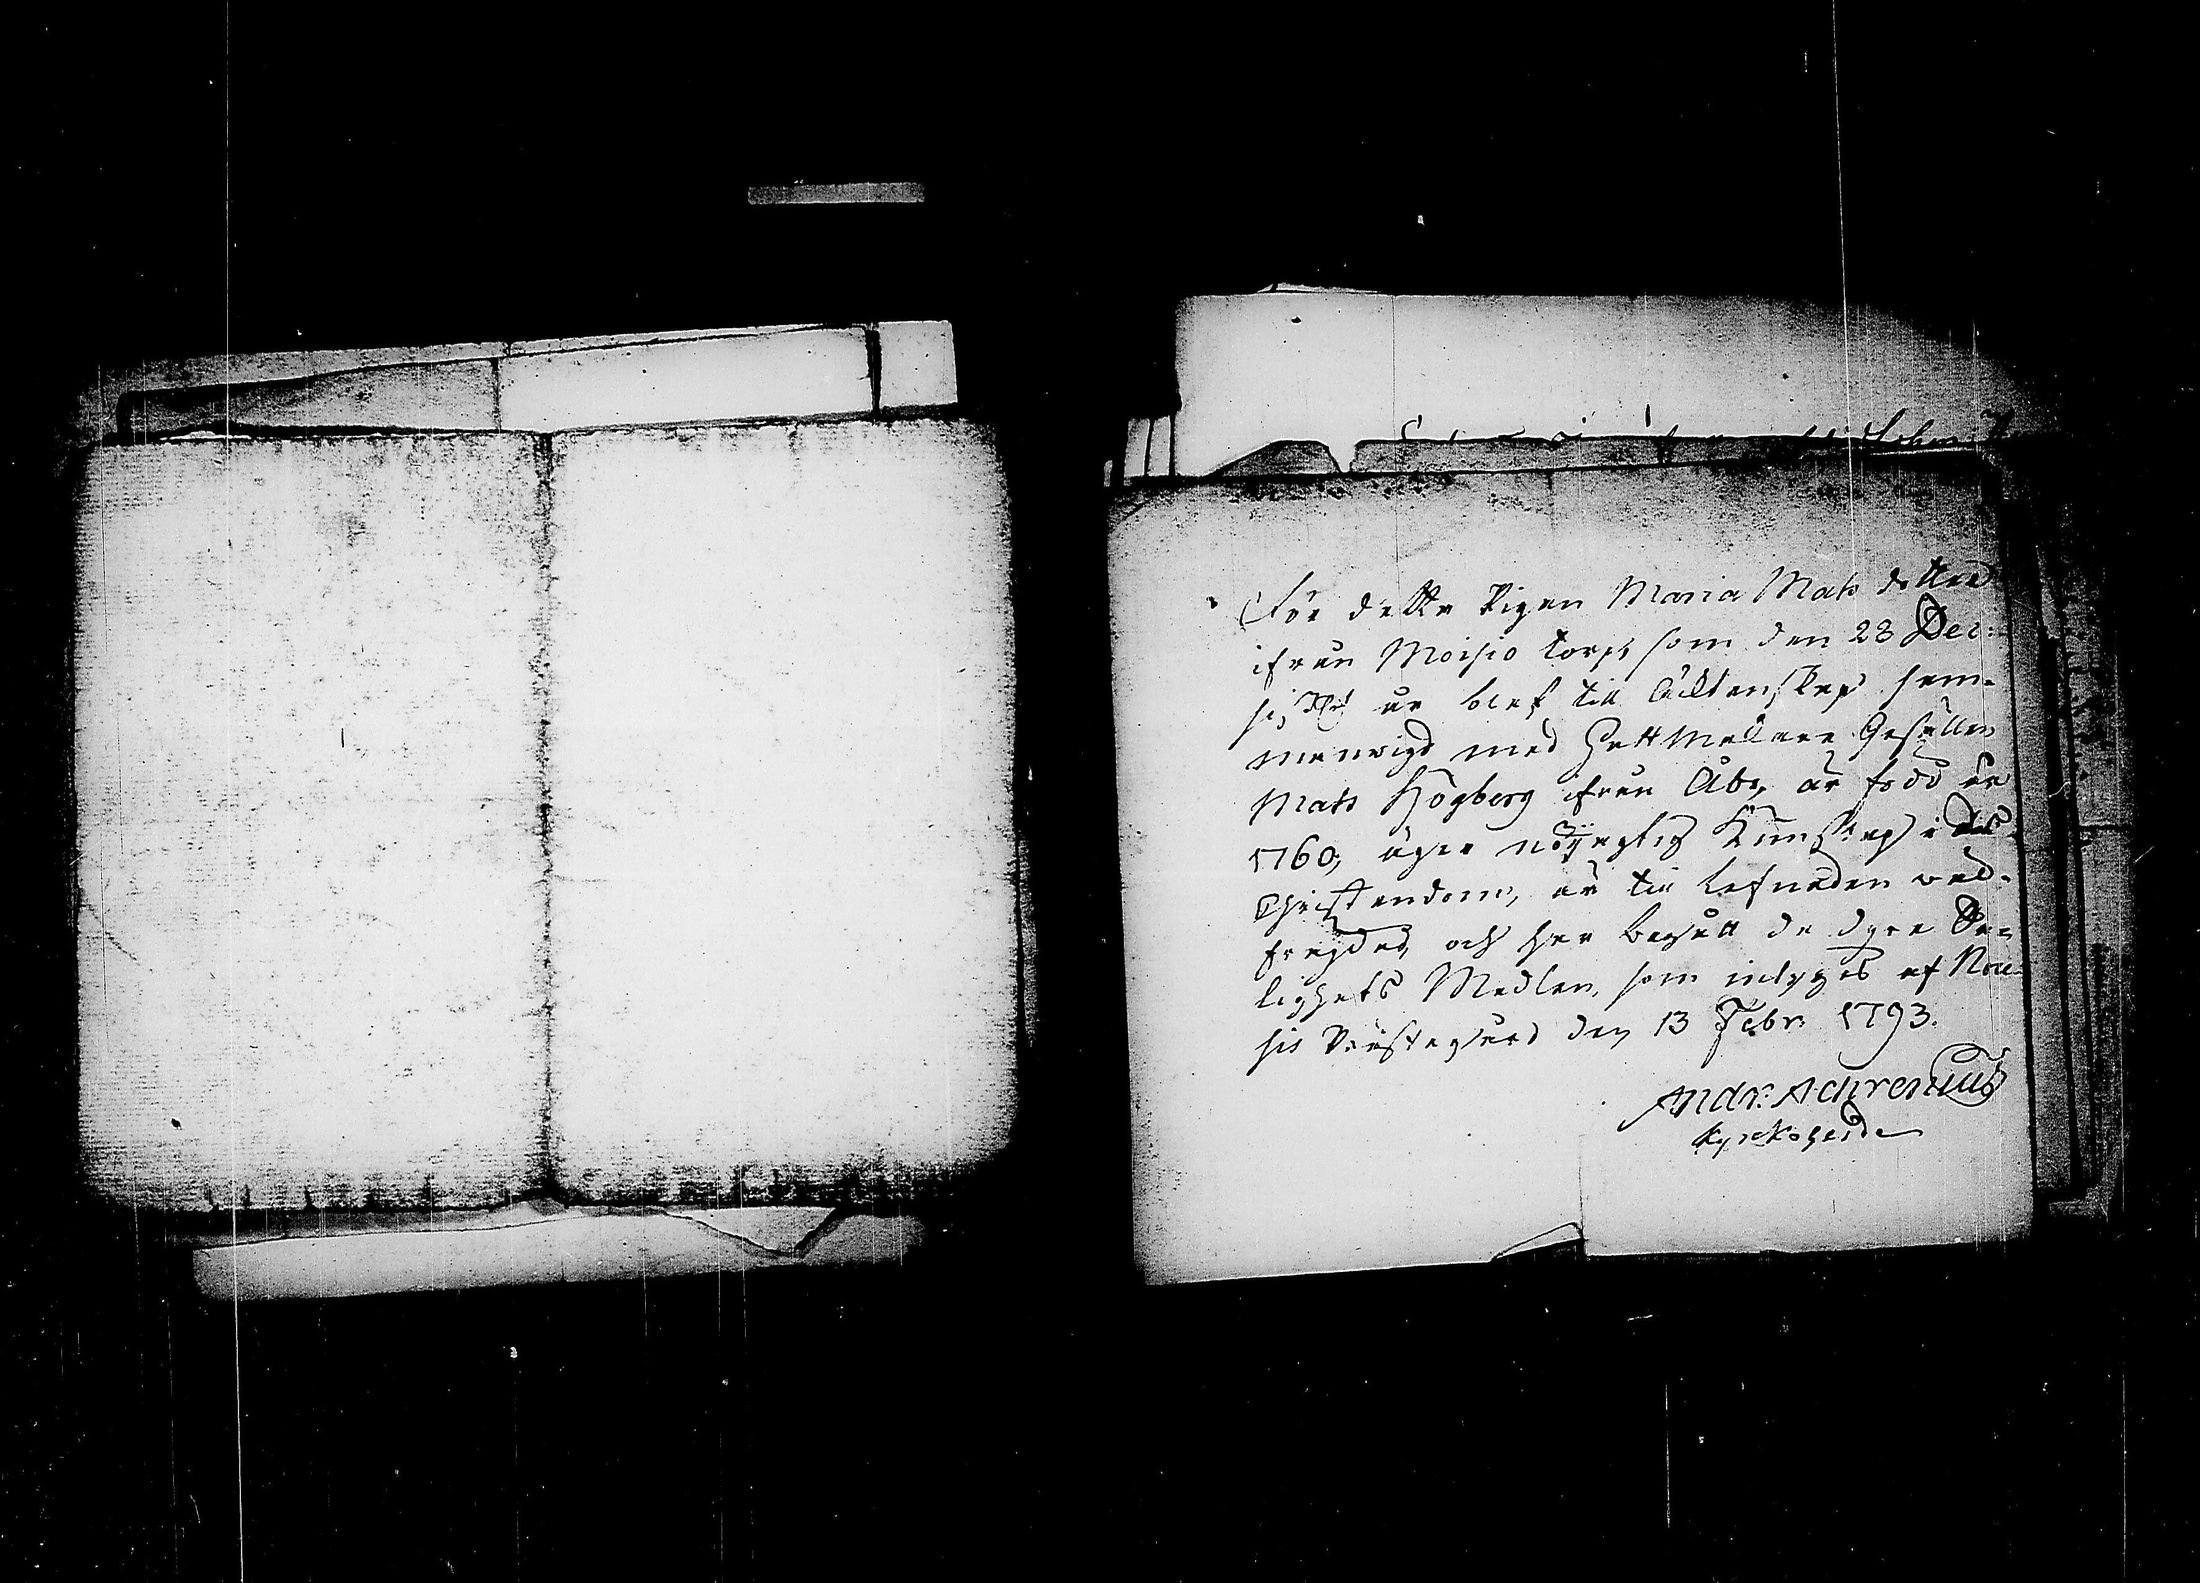 Före detta Pigan Maria Mats dotter
ifrån Moisio torp, som den 28 Dec:
sistl. år blef till Äcktenskap sam-
manvigd med Hattmakare Gesällen
Mats Högberg ifrån Åbo, är född år
1760, äger nöjagtig Kunskap i
Christendom, är till lefnaden väl-
frejdad, och har begått de dyra Sa-
lighets Medlen, som intygas af Nou-
sis Prästegård den 13 Febr. 1793.
Andr. Achrenius
Kyrkoherde